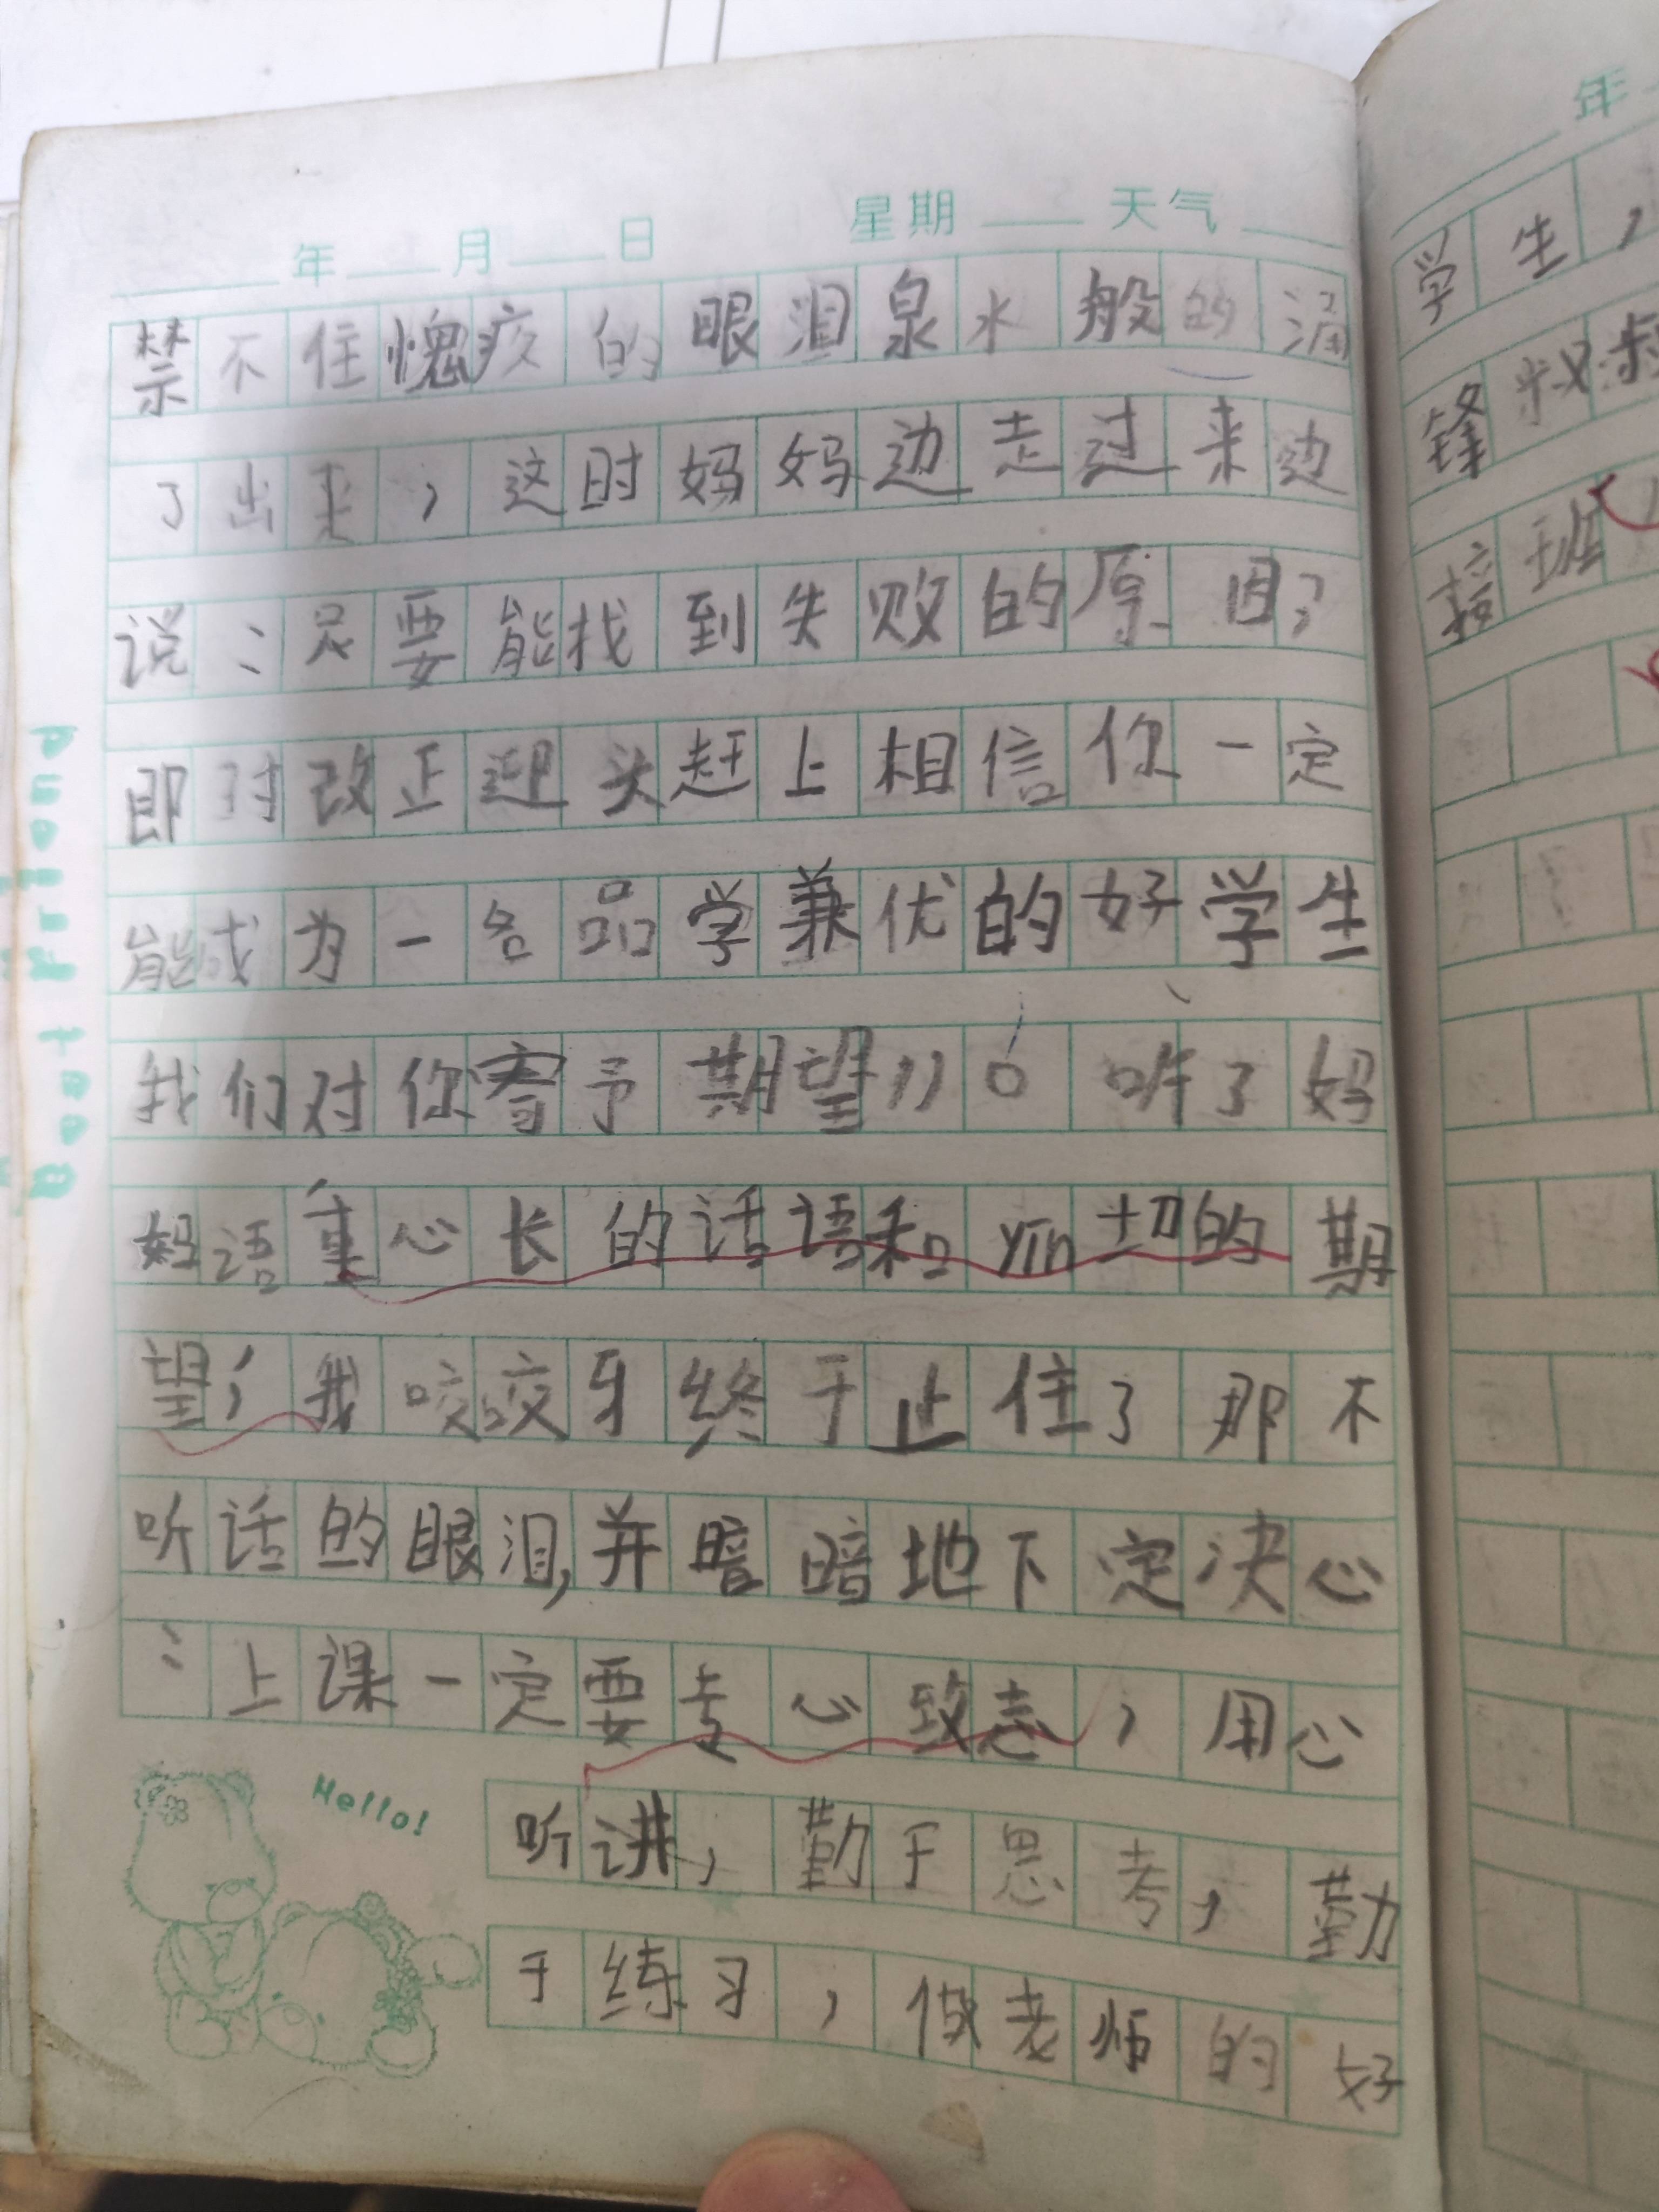 年 月 日 星期 天气
禁不住愧疚的眼泪泉水般的涌
了出来，这时妈妈边走过来边
说：只要能找到失败的原因，
即时改正迎头赶上相信你一定
能成为一名品学兼优的好学生
我们对你寄予期望”。听了妈
妈语重心长的话语和yin切的期
望，我咬咬牙终于止住了那不
听话的眼泪，并暗暗地下定决心
：上课一定要专心致志，用心
听讲，勤于思考，勤
于练习，做老师的好
Hello!
年
学生，
锋叔叔
接班